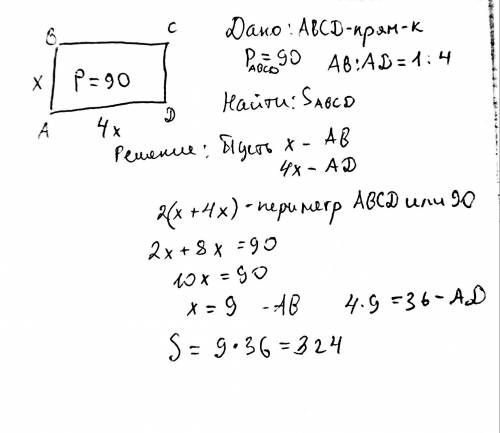 B C
x P = 90
A 4x D
Дано: ABCD-прям-к
P ABCD = 90 AB:AD = 1:4
Найти: S ABCD
Решение: Пусть x - AB
4x - AD
2(x + 4x) - периметр ABCD или 90
2x + 8x = 90
10x = 90
x = 9 - AB 4·9 = 36 - AD
S = 9·36 = 324